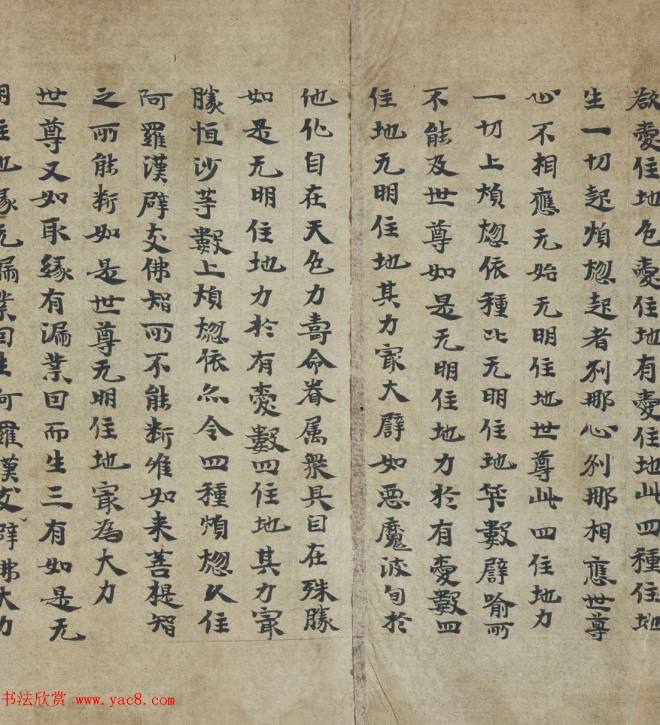 欲愛住地色愛住地有愛住地此四種住地
生一切起煩惱起者刹那心刹那相應世尊
心不相應无始无明住地世尊此四住地力
一切上煩惱依種比无明住地筭數譬喻所
不能及世尊如是无明住地力於有愛數四
住地无明住地其力冣大譬如惡魔波旬於
他化自在天色力壽命眷属衆具自在殊勝
如是无明住地力於有愛數四住地其力冣
勝恒沙等數上煩惱依亦令四種煩惱久住
阿羅漢辟支佛智所不能断唯如来菩提智
之所能断如是世尊无明住地冣為大力
世尊又如取緣有漏業因而生三有如是无
明住地緣无漏業因生阿羅漢辟支佛大力
书法欣赏 www.yac8.com